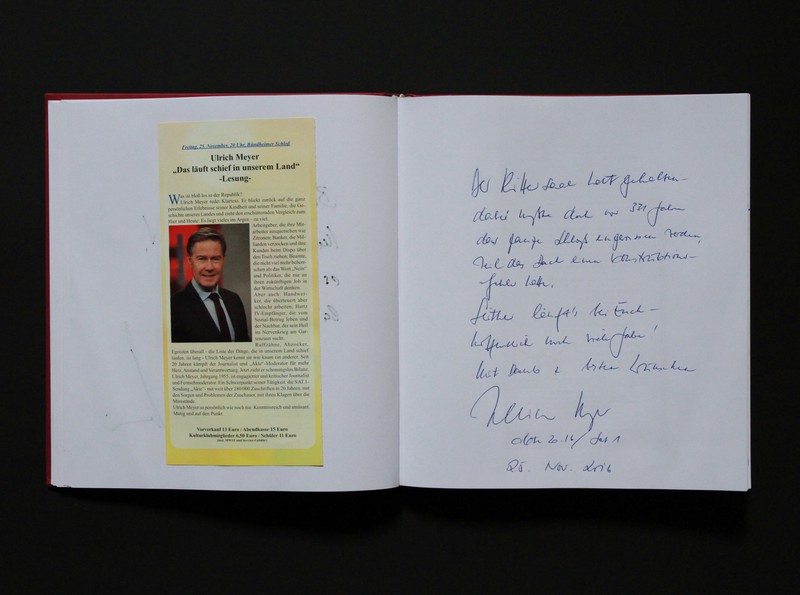 Freitag, 25. November, 20 Uhr, Ründheimer Schloß
Ulrich Meyer
„Das läuft schief in unserem Land“
-Lesung-
Was ist bloß los in der Republik?
Ulrich Meyer redet Klartext. Er blickt zurück auf die ganz
persönlichen Erlebnisse seiner Kindheit und seiner Familie, die Ge-
schichte unseres Landes und zieht den erschütternden Vergleich zum
Hier und Heute. Es liegt vieles im Argen - zu viel.
Arbeitgeber, die ihre Mit-
arbeiter ausquetschen wie
Zitronen; Banker, die Mil-
liarden verzocken und ihre
Kunden beim Dispo über
den Tisch ziehen; Beamte,
die nicht viel mehr beherr-
schen als das Wort „Nein“
und Politiker, die nur an
ihren zukünftigen Job in
der Wirtschaft denken.
Aber auch: Handwer-
ker, die überteuert aber
schlecht arbeiten. Hartz
IV-Empfänger, die vom
Sozial-Betrug leben und
der Nachbar, der sein Heil
im Nervenkrieg am Gar-
tenzaun sucht.
Raffzähne, Abzocker,
Egoisten überall - die Liste der Dinge, die in unserem Land schief
laufen, ist lang - Ulrich Meyer kennt sie wie kaum ein anderer. Seit
20 Jahren kämpft der Journalist und „Akte“-Moderator für mehr
Herz, Anstand und Verantwortung. Jetzt zieht er schonungslos Bilanz.
Ulrich Meyer, Jahrgang 1955, ist engagierter und kritischer Journalist
und Fernsehmoderator. Ein Schwerpunkt seiner Tätigkeit: die SAT.1-
Sendung „Akte“ - mit weit über 100 000 Zuschriften in 20 Jahren, mit
den Sorgen und Problemen der Zuschauer, mit ihren Klagen über die
Missstände.
Ulrich Meyer so persönlich wie noch nie. Kenntnisreich und amüsant.
Mutig und auf den Punkt.
Vorverkauf 13 Euro / Abendkasse 15 Euro
Kulturklubmitglieder 6,50 Euro / Schüler 11 Euro
Der Rittersaal hat gehalten -
dabei mußte doch vor 331 Jahren
das ganze Schloß eingerissen werden,
weil das Dach einen Konstruktions-
fehler hatte.
Seither klappt's bei Euch -
hoffentlich noch viele Jahre!
Mit Dank & besten Wünschen
Ulrich Meyer
akte 20.16 / Sat 1
25. Nov. 2016